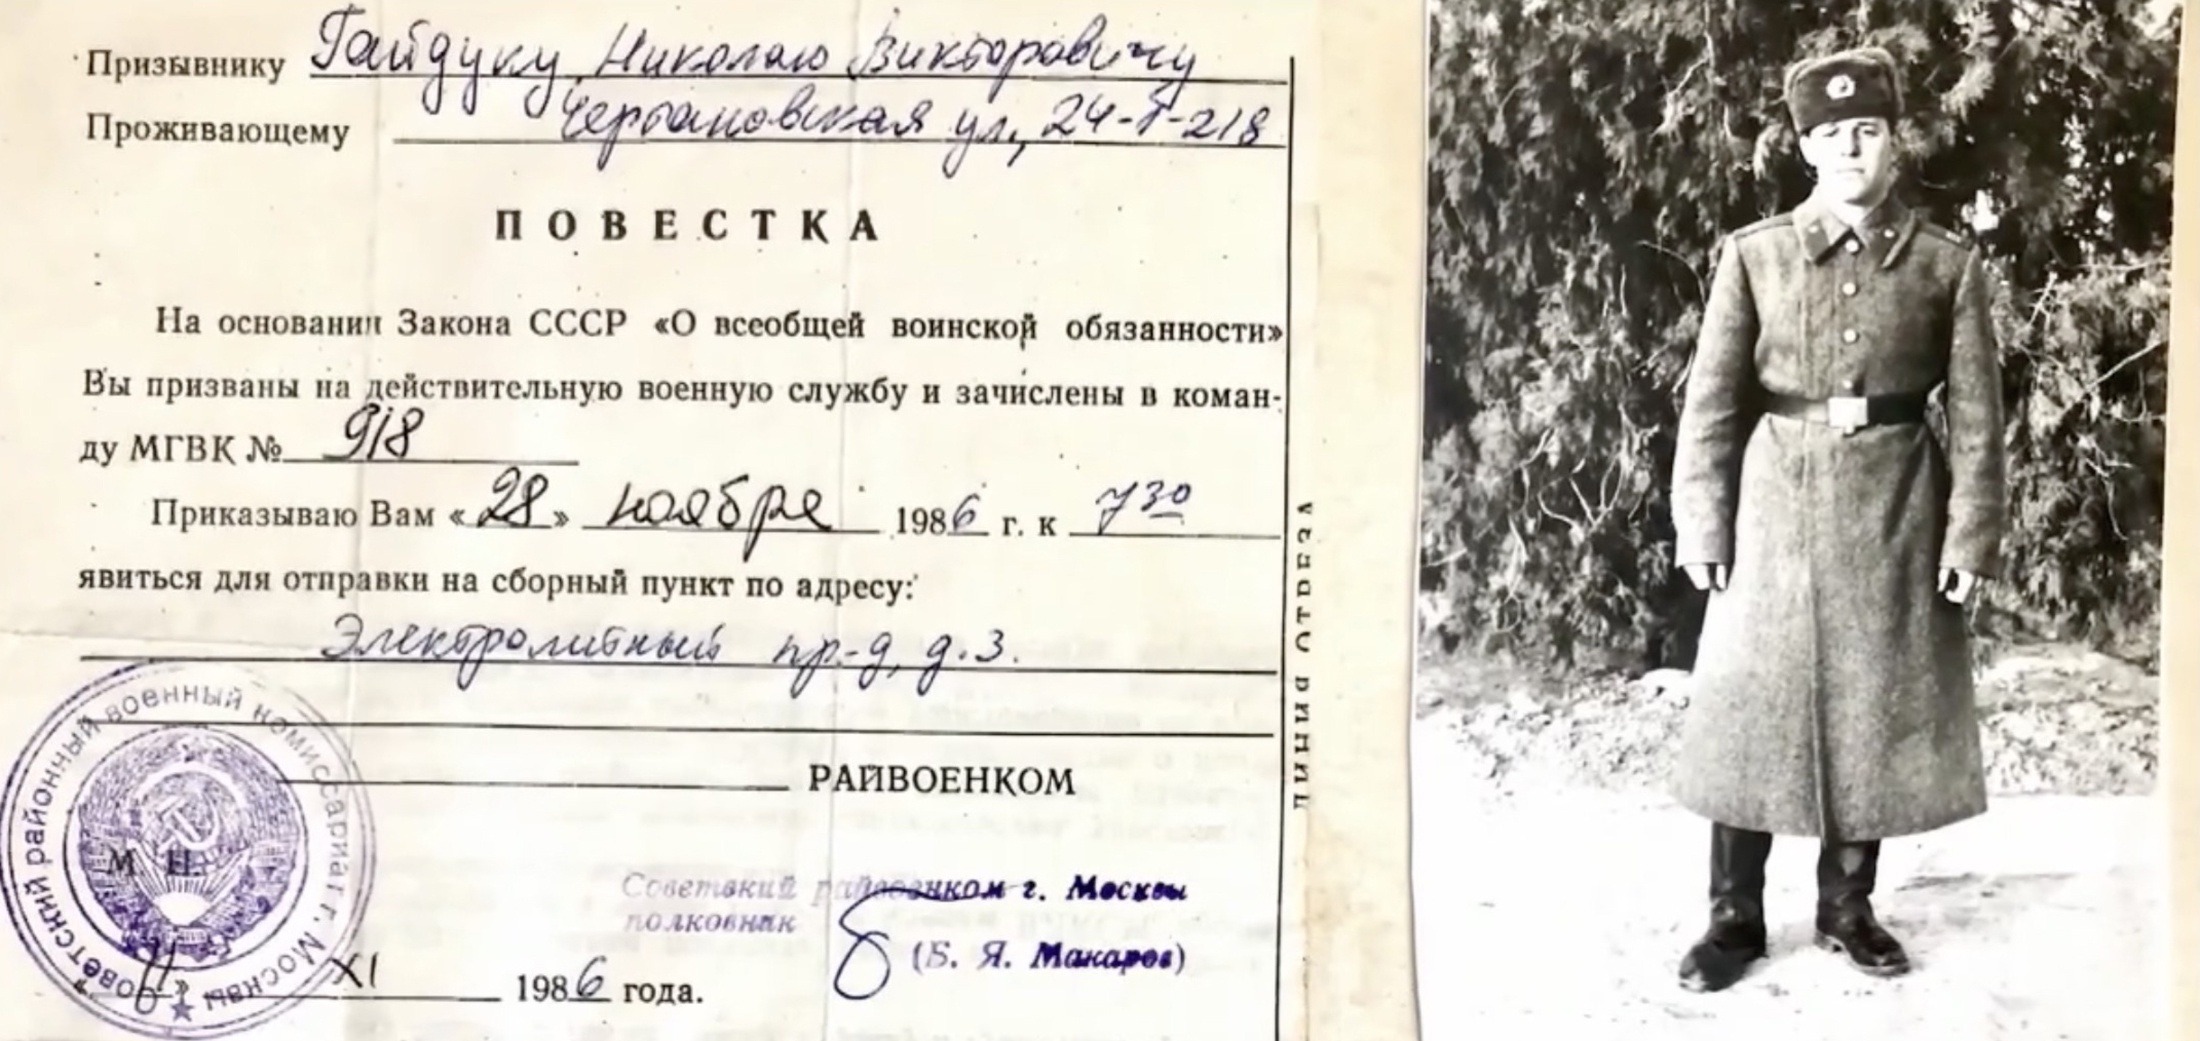 Призывнику Гайдуку Николаю Викторовичу
Проживающему Чертановская ул., 24-1-218
ПОВЕСТКА
На основании Закона СССР «О всеобщей воинской обязанности»
Вы призваны на действительную военную службу и зачислены в коман-
ду МГВК № 918
Приказываю Вам «28» ноября 1986 г. к 7 30
явиться для отправки на сборный пункт по адресу:
Электролитный пр-д, д.3.
РАЙВОЕНКОМ
М. П.
Советский районный военный комиссариат г. Москвы
Советский райвоенком г. Москвы
полковник
(Б. Я. Макаров)
XI 1986 года.
ЛИНИЯ ОТРЕЗА